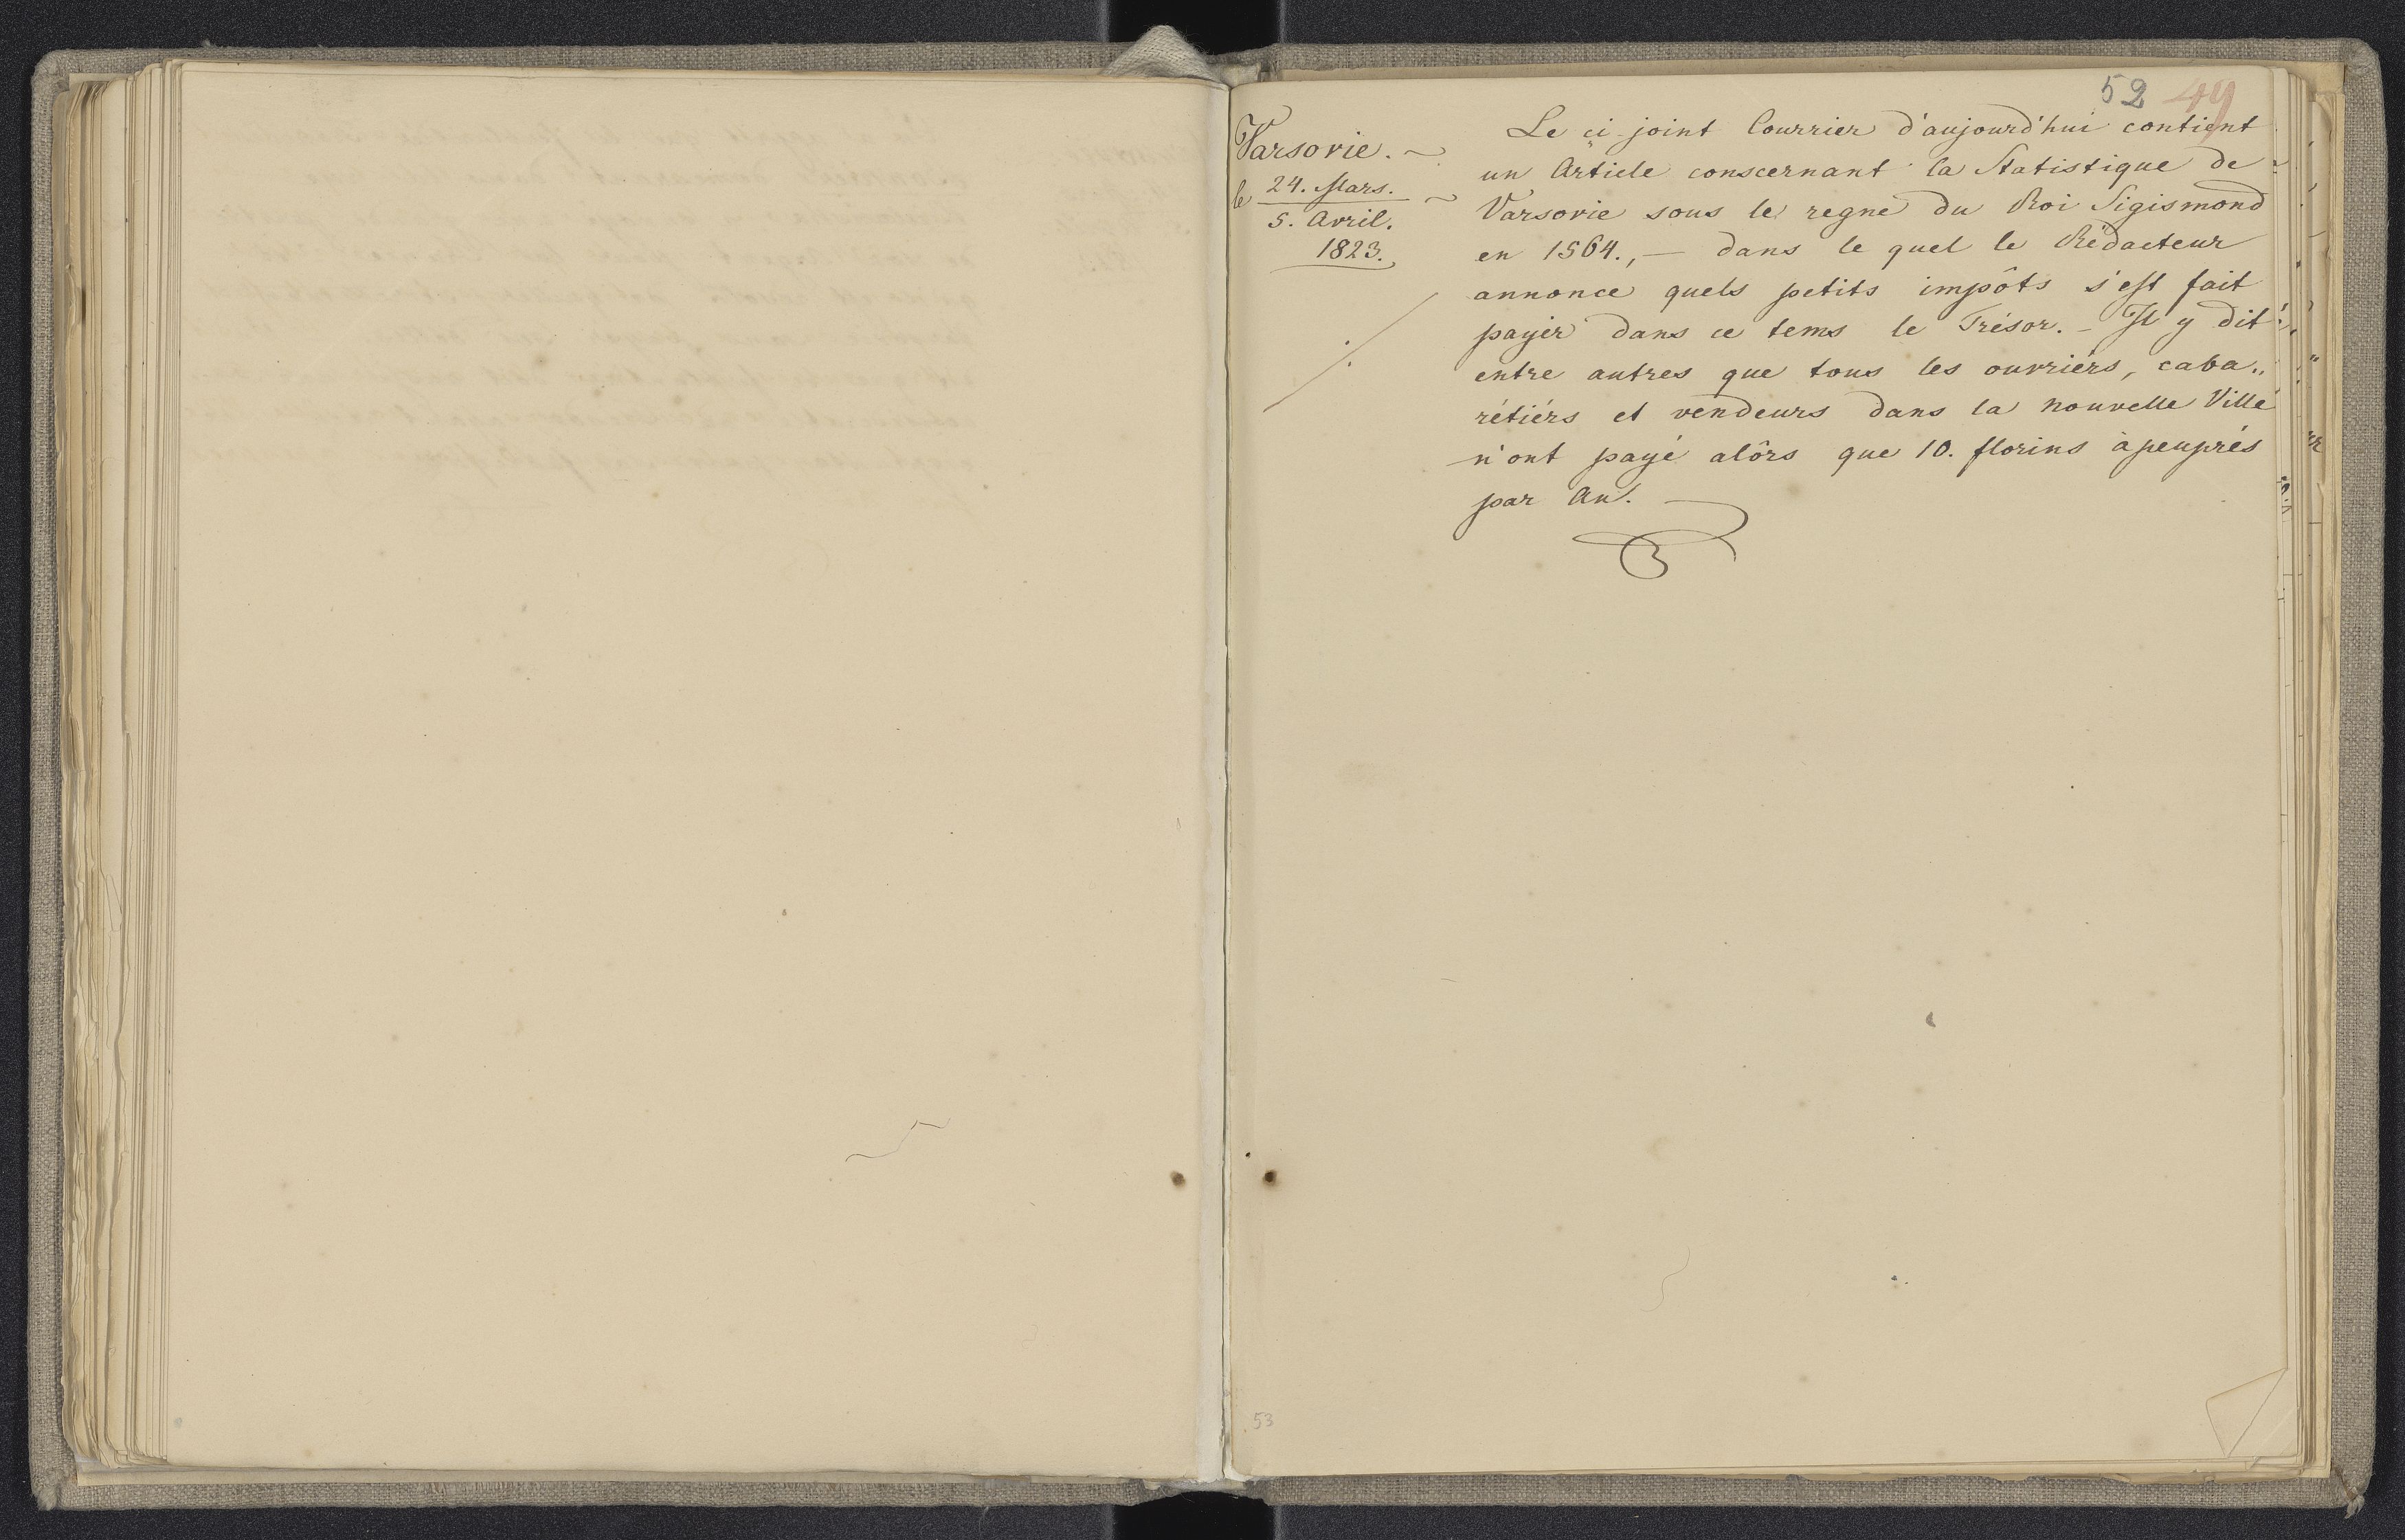 52 49
Varsovie.
le 24. Mars.
5. Avril.
1823.
Le ci-joint Courrier d'aujourd'hui contient
un Article conscernant la Statistique de
Varsovie sous le regne du Roi Sigismond
en 1564., — dans le quel le Rédacteur
annonce quels petits impôts s'est fait
payér dans ce tems le Trésor. — Il y dit
entre autres que tous les ouvriérs, caba„
rétiérs et vendeurs dans la nouvelle Ville
n'ont payé alôrs que 10. florins àpeuprés
par An. —
53